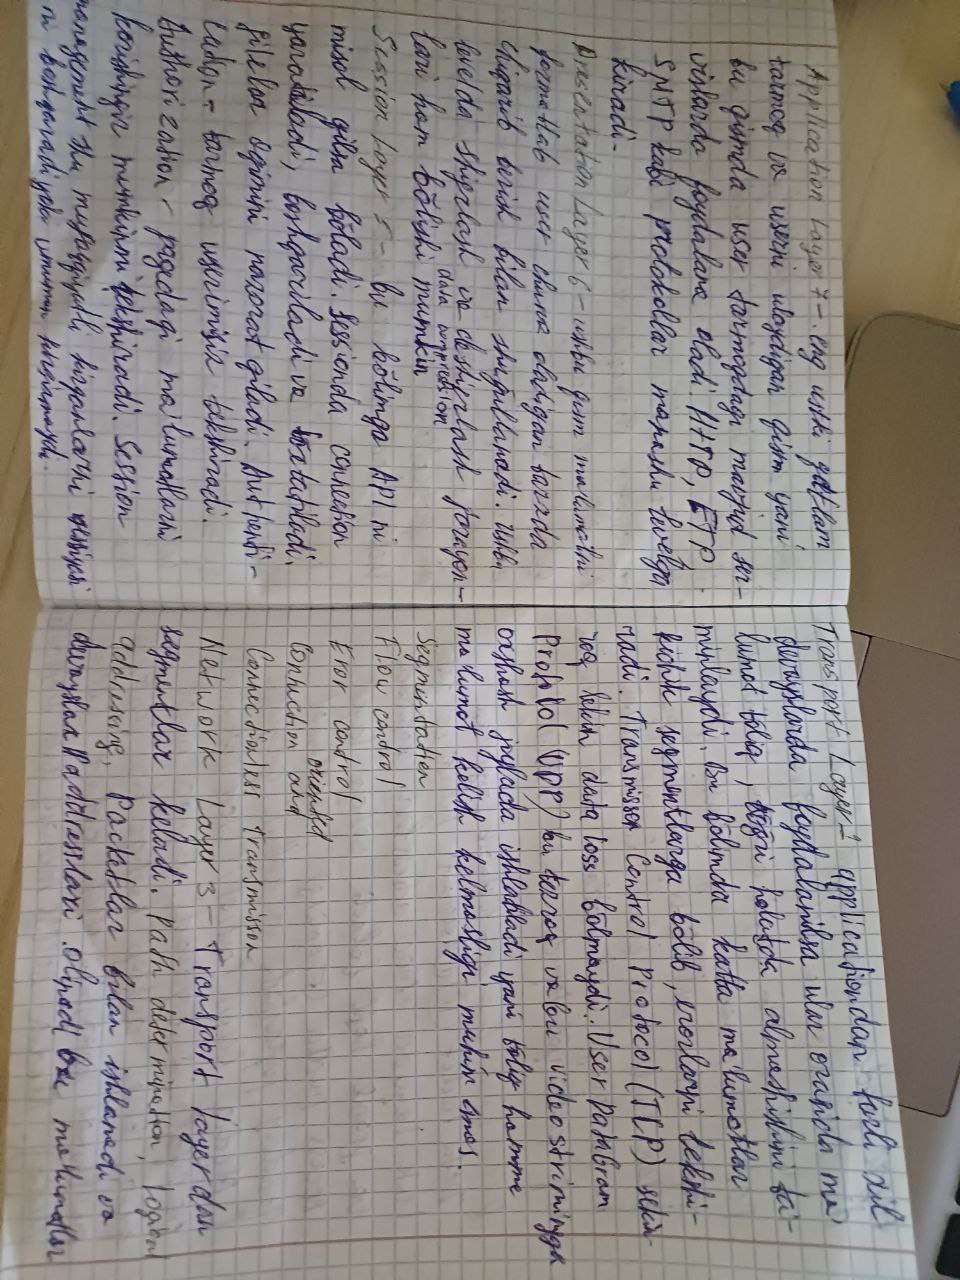 Application Layer 7-. eng ustki qatlam
tarmoq va userni ulaydigan qism yani
bu qismda user tarmoqdagi mavjud ser-
vislarda foydalana oladi. HTTP, FTP
SMTP kabi protokollar manashu levelga
kiradi.
Presentation Layer 6 - ushbu qism malumotni
formatlab user uchun oladigan tarzda
chiqarib berish bilan shug'ullanadi. Ushbu
levelda shifrlash va deshifrlash jarayon-
data compression
lari ham bo'lishi mumkin
Session Layer 5 - bu bo'limga API ni
misol qilsa bo'ladi. Sessionda conection
yaratiladi, boshqariladi va tratatiladi,
fileba oqimini nazorat qiladi. Authenti-
cation - tarmoq userimizni tekshiradi.
Authorization - pagedagi ma'lumotlarni
ko'rishingiz mumkinmi tekshiradi. Session
management shu mavjudi
ni boshqaradi yoki umuman
Transport Layer- applicationdan turli xil
davayslarda foydalanilsa ular orasida ma'
lumot to'liq, to'g'ri holatda almashishni ta'-
minlaydi. Bu bo'limda katta ma'lumotlar
kichik segmentlarga bo'lib, erorlarni tekshi-
radi. Transmisson Control Protocol (TCP) sekin-
roq lekin data loss bo'lmaydi. User Datagram
Protokol (UDP) bu tezroq va bu video strimingga
oxshash joylarda ishlatiladi yani to'liq hamma
ma'lumot kelish kelmasligi muhim emas.
Segmentation
Flow control
Error control
oriented
Connection
Connectionless transmisson
Network Layer 3 - Transport layerdan
segmentlar keladi. Path determination, logical
addresing, Packetlar bilan ishlanadi va
davayslar IP addresslari olinadi